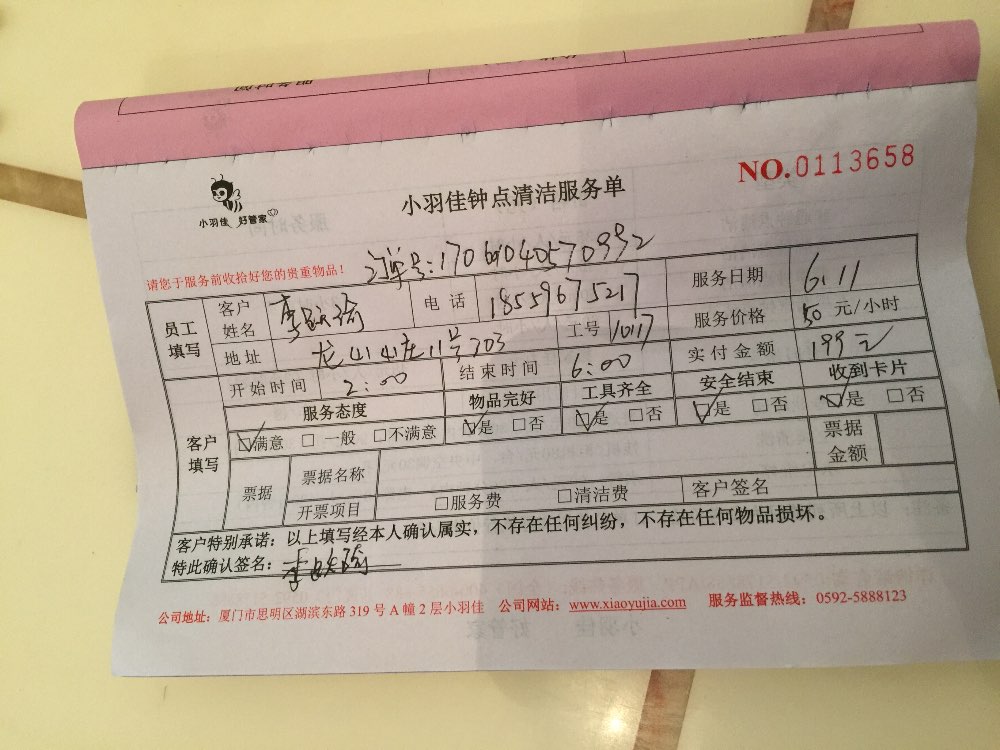 NO.0113658
小羽佳 好管家
小羽佳钟点清洁服务单
请您于服务前收拾好您的贵重物品！
订单号:
员工填写 客户姓名 李 电话 18559675217 服务日期 6.11
地址 龙山山庄11号703 工号 1017 服务价格 50 元/小时
客户填写 开始时间 2:00 结束时间 6:00 实付金额 199元
服务态度 物品完好 工具齐全 安全结束 收到卡片
☑满意 □一般 □不满意 ☑是 □否 ☑是 □否 ☑是 □否 ☑是 □否
票据 票据名称 票据金额
开票项目 □服务费 □清洁费 客户签名
客户特别承诺：以上填写经本人确认属实，不存在任何纠纷，不存在任何物品损坏。
特此确认签名：李
公司地址：厦门市思明区湖滨东路 319 号 A 幢 2 层小羽佳 公司网站：www.xiaoyujia.com 服务监督热线：0592-5888123